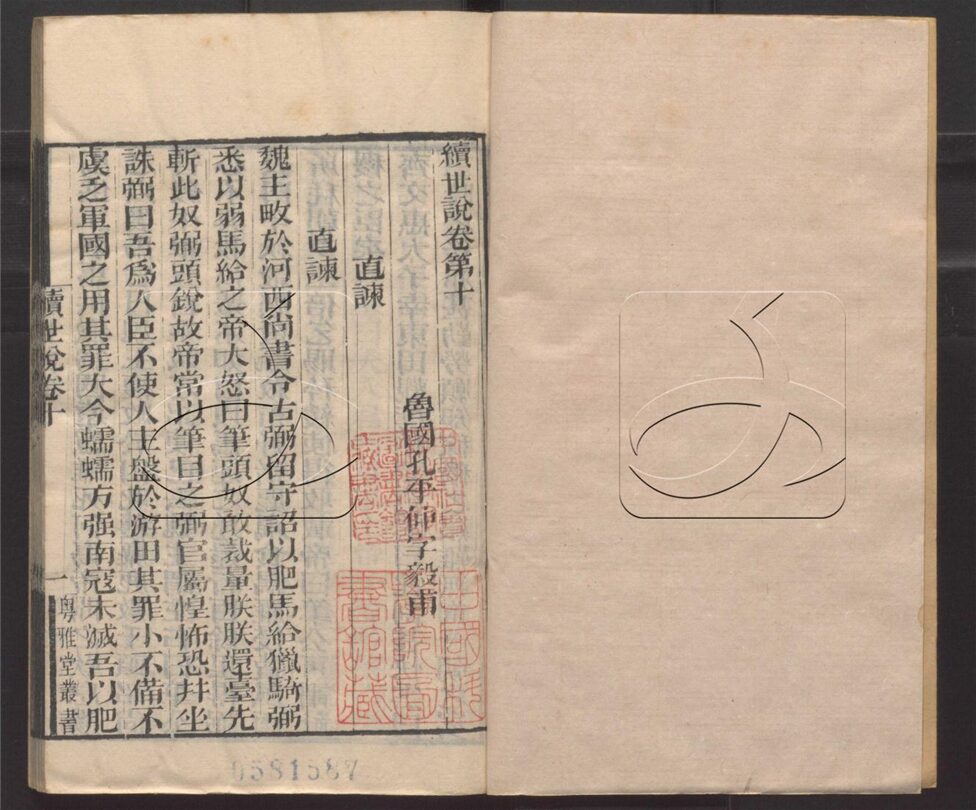 續世說卷第十
魯國孔平仲字毅甫
直諫
直諫
魏主畋於河西尚書令古弼留守詔以肥馬給獵騎弼
悉以弱馬給之帝大怒曰筆頭奴敢裁量朕朕還臺先
斬此奴弼頭銳故帝常以筆目之弼官屬惶怖恐并坐
誅弼曰吾爲人臣不使人主盤於游田其罪小不備不
虞乏軍國之用其罪大今蠕蠕方强南寇未滅吾以肥
續世說卷十
一
粵雅堂叢書
0581587